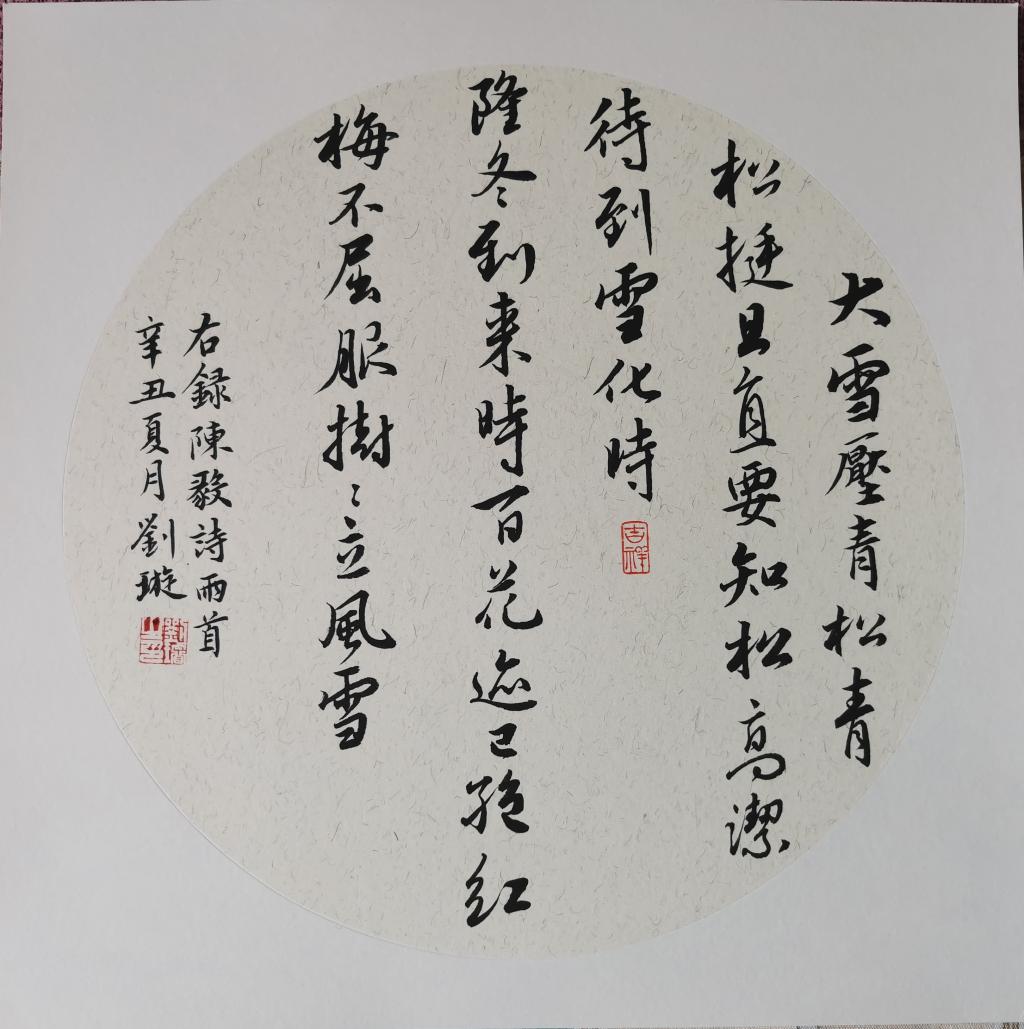 大雪壓青松青
松挺且直要知松高潔
待到雪化時
吉祥
隆冬到来時百花迹已絶红
梅不屈服樹〻立風雪
右録陳毅詩兩首
辛丑夏月劉璇